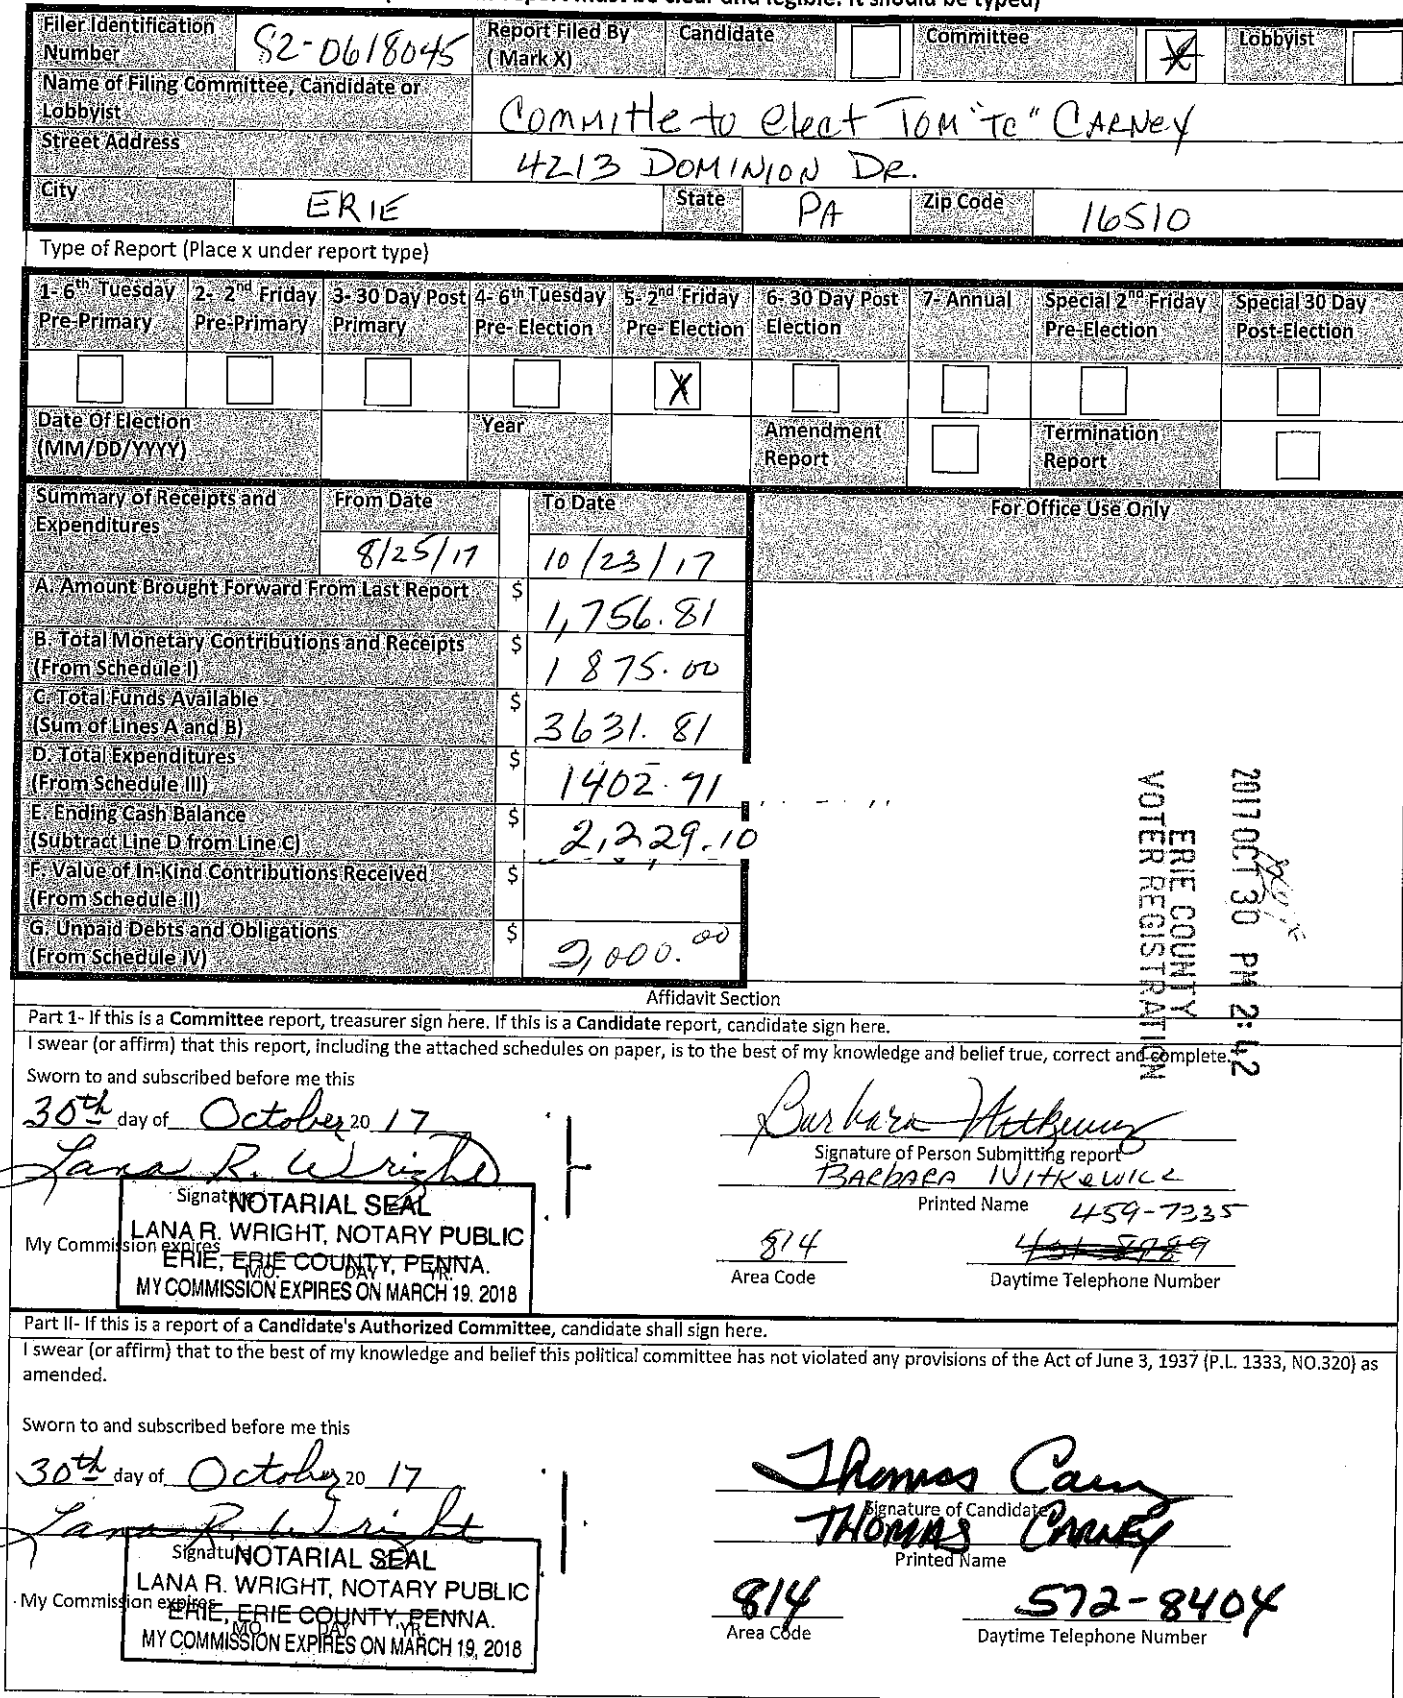 Filer Identification Number 82-0618045 Report Filed By ( Mark X) Candidate Committee X Lobbyist
Name of Filing Committee, Candidate or Lobbyist Committe to elect TOM "TC" CARNEY
Street Address 4213 DOMINION DR.
City ERIE State PA Zip Code 16510
Type of Report (Place x under report type)
1- 6th Tuesday Pre-Primary 2- 2nd Friday Pre-Primary 3- 30 Day Post Primary 4- 6th Tuesday Pre- Election 5- 2nd Friday Pre- Election 6- 30 Day Post Election 7- Annual Special 2nd Friday Pre-Election Special 30 Day Post-Election
X
Date Of Election (MM/DD/YYYY) Year Amendment Report Termination Report
Summary of Receipts and Expenditures From Date 8/25/17 To Date 10/23/17 For Office Use Only
A. Amount Brought Forward From Last Report $ 1,756.81
B. Total Monetary Contributions and Receipts (From Schedule I) $ 1875.00
C. Total Funds Available (Sum of Lines A and B) $ 3631.81
D. Total Expenditures (From Schedule III) $ 1402.71
E. Ending Cash Balance (Subtract Line D from Line C) $ 2,229.10
F. Value of In-Kind Contributions Received (From Schedule II) $
G. Unpaid Debts and Obligations (From Schedule IV) $ 2,000.00
2017 OCT 30 PM 2:42
ERIE COUNTY
VOTER REGISTRATION
Affidavit Section
Part 1- If this is a Committee report, treasurer sign here. If this is a Candidate report, candidate sign here.
I swear (or affirm) that this report, including the attached schedules on paper, is to the best of my knowledge and belief true, correct and complete.
Sworn to and subscribed before me this
30th day of October 20 17
Lana R. Wright
Signature
NOTARIAL SEAL
LANA R. WRIGHT, NOTARY PUBLIC
My Commission expires
ERIE, ERIE COUNTY, PENNA.
MO. DAY YR.
MY COMMISSION EXPIRES ON MARCH 19, 2018
Barbara Nitkewicz
Signature of Person Submitting report
BARBARA NITKEWICZ
Printed Name
459-7335
814
Area Code Daytime Telephone Number
Part II- If this is a report of a Candidate's Authorized Committee, candidate shall sign here.
I swear (or affirm) that to the best of my knowledge and belief this political committee has not violated any provisions of the Act of June 3, 1937 (P.L. 1333, NO.320) as
amended.
Sworn to and subscribed before me this
30th day of October 20 17
Lana R. Wright
Signature
NOTARIAL SEAL
LANA R. WRIGHT, NOTARY PUBLIC
My Commission expires
ERIE, ERIE COUNTY, PENNA.
MO. DAY YR.
MY COMMISSION EXPIRES ON MARCH 19, 2018
Thomas Carney
Signature of Candidate
THOMAS CARNEY
Printed Name
814 572-8404
Area Code Daytime Telephone Number